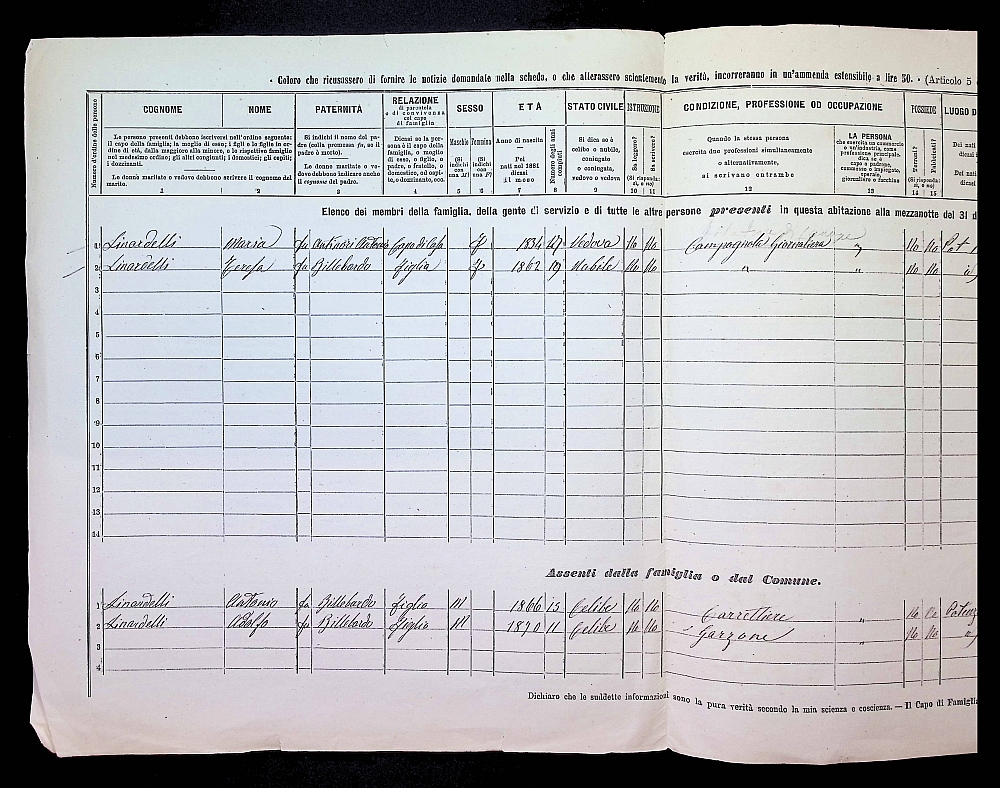 • Coloro che ricusassero di fornire le notizie domandate nella scheda, o che alterassero scientemente la verità, incorreranno in un'ammenda estensibile a lire 50. • (Articolo 5
Numero d'ordine delle persone
COGNOME NOME PATERNITÀ RELAZIONE di parentela o di convivenza col capo di famiglia SESSO ETÀ STATO CIVILE ISTRUZIONE CONDIZIONE, PROFESSIONE OD OCCUPAZIONE POSSIEDE LUOGO D
Le persone presenti debbono iscriversi nell'ordine seguente: il capo della famiglia; la moglie di esso; i figli e le figlie in ordine di età, dalla maggiore alla minore, e le rispettive famiglie nel medesimo ordine; gli altri congiunti; i domestici; gli ospiti; i dozzinanti.
Le donne maritate o vedove debbono scrivere il cognome del marito.
Si indichi il nome del padre (colla premessa fu, se il padre è morto).
Le donne maritate o vedove debbono indicare anche il cognome del padre.
Dicasi se la persona è il capo della famiglia, o moglie di esso, o figlio, o padre, o fratello, o domestico, od ospite, o dozzinante, ecc.
Maschio (Si indichi con una M)
Femmina (Si indichi con una F)
Anno di nascita
Pei nati nel 1881 dicasi il mese
Numero degli anni compiuti
Si dica se è celibe o nubile, coniugato o coniugata, vedovo o vedova
Sa leggere?
Sa scrivere?
(Si risponda: sì, o no)
Quando la stessa persona esercita due professioni simultaneamente o alternativamente, si scrivano entrambe
LA PERSONA che esercita un commercio o un'industria, come professione principale, dica se è capo o padrone, commesso o impiegato, operaio, giornaliero o facchino
Terreni?
Fabbricati?
(Si risponda: sì, o no)
Dei nati
dicasi i
Dei nati
dicasi
1 2 3 4 5 6 7 8 9 10 11 12 13 14 15
Elenco dei membri della famiglia, della gente di servizio e di tutte le altre persone presenti in questa abitazione alla mezzanotte del 31 d
1 Linardelli Maria fu Antinori Antonio Capo di Casa F 1834 47 Vedova No No Campagnola Giornaliera " No No Pot
2 Linardelli Teresa fu Billebardo Figlia F 1862 19 Nubile No No " " No No
3
4
5
6
7
8
9
10
11
12
13
14
Assenti dalla famiglia o dal Comune.
1 Linardelli Antonio fu Billebardo Figlio M 1866 15 Celibe No No Carrettiere " No No Potenz
2 Linardelli Adolfo fu Billebardo Figlio M 1870 11 Celibe No No Garzone " No No "
3
4
Dichiaro che le suddette informazioni sono la pura verità secondo la mia scienza e coscienza. — Il Capo di Famiglia